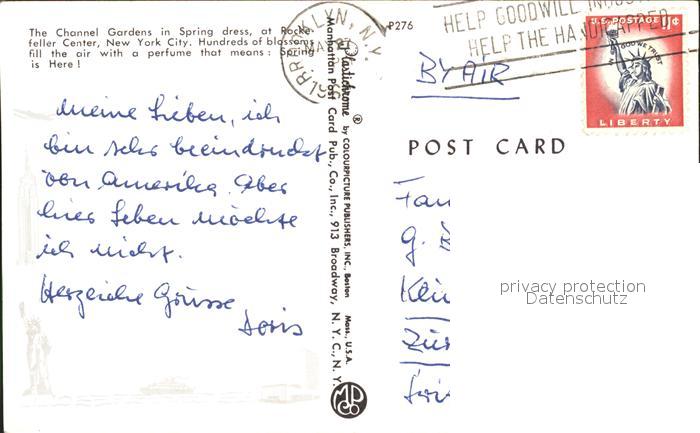 The Channel Gardens in Spring dress, at Rocke-
feller Center, New York City. Hundreds of blossoms
fill the air with a perfume that means: Spring
is Here!
BROOKLYN, N.Y.
P276
HELP GOODWILL INDUS
HELP THE HANDICAPPED
U.S. POSTAGE 11¢
IN GOD WE TRUST
LIBERTY
BY AIR
POST CARD
Meine Lieben, ich
bin sehr beeindruckt
von Amerika. Aber
hier leben möchte
ich nicht.
Herzliche Grüsse
Doris
Plastichrome ® by COLOURPICTURE PUBLISHERS, INC., Boston Mass., U.S.A.
Manhattan Post Card Pub., Co., Inc., 913 Broadway, N.Y.C., N.Y.
Fam
G.
Zür
privacy protection
Datenschutz